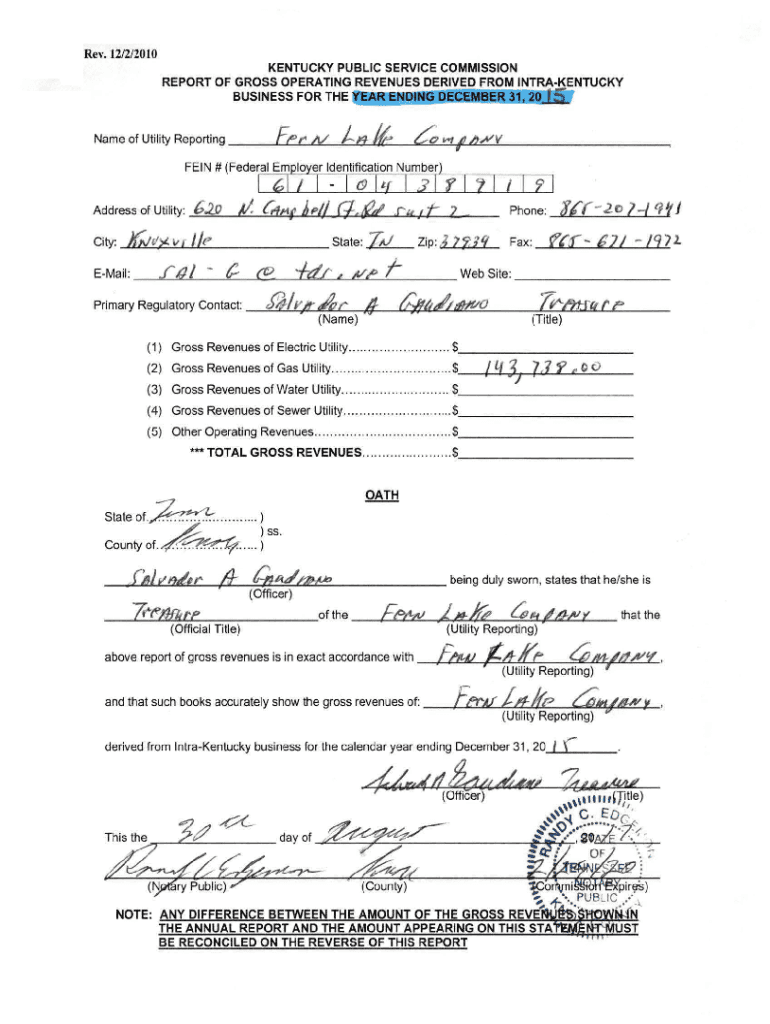 Rev. 12/2/2010
KENTUCKY PUBLIC SERVICE COMMISSION
REPORT OF GROSS OPERATING REVENUES DERIVED FROM INTRA-KENTUCKY
BUSINESS FOR THE YEAR ENDING DECEMBER 31, 20 15
Name of Utility Reporting Fern Lake Company
FEIN # (Federal Employer Identification Number)
6 1 - 0 4 3 8 9 1 9
Address of Utility: 620 N. Campbell St. Rd suit 2 Phone: 865-207-1941
City: Knoxville State: TN Zip: 37934 Fax: 865-671-1972
E-Mail: SAL-G@tds.net Web Site:
Primary Regulatory Contact: Salvador A Gaudiano Treasure
(Name) (Title)
(1) Gross Revenues of Electric Utility.......................... $
(2) Gross Revenues of Gas Utility............................... $ 143,738.00
(3) Gross Revenues of Water Utility............................ $
(4) Gross Revenues of Sewer Utility........................... $
(5) Other Operating Revenues................................... $
*** TOTAL GROSS REVENUES....................... $
OATH
State of Tenn )
) ss.
County of Knox )
Salvador A Gaudiano being duly sworn, states that he/she is
(Officer)
Treasure of the Fern Lake Company that the
(Official Title) (Utility Reporting)
above report of gross revenues is in exact accordance with Fern Lake Company,
(Utility Reporting)
and that such books accurately show the gross revenues of: Fern Lake Company,
(Utility Reporting)
derived from Intra-Kentucky business for the calendar year ending December 31, 20 15.
Salvador A Gaudiano Treasure
(Officer) (Title)
This the 30th day of August, 2017
Knox
(Notary Public) (County) (Commission Expires)
RANDY C. EDGEMON
STATE
OF
TENNESSEE
NOTARY
PUBLIC
NOTE: ANY DIFFERENCE BETWEEN THE AMOUNT OF THE GROSS REVENUES SHOWN IN
THE ANNUAL REPORT AND THE AMOUNT APPEARING ON THIS STATEMENT MUST
BE RECONCILED ON THE REVERSE OF THIS REPORT